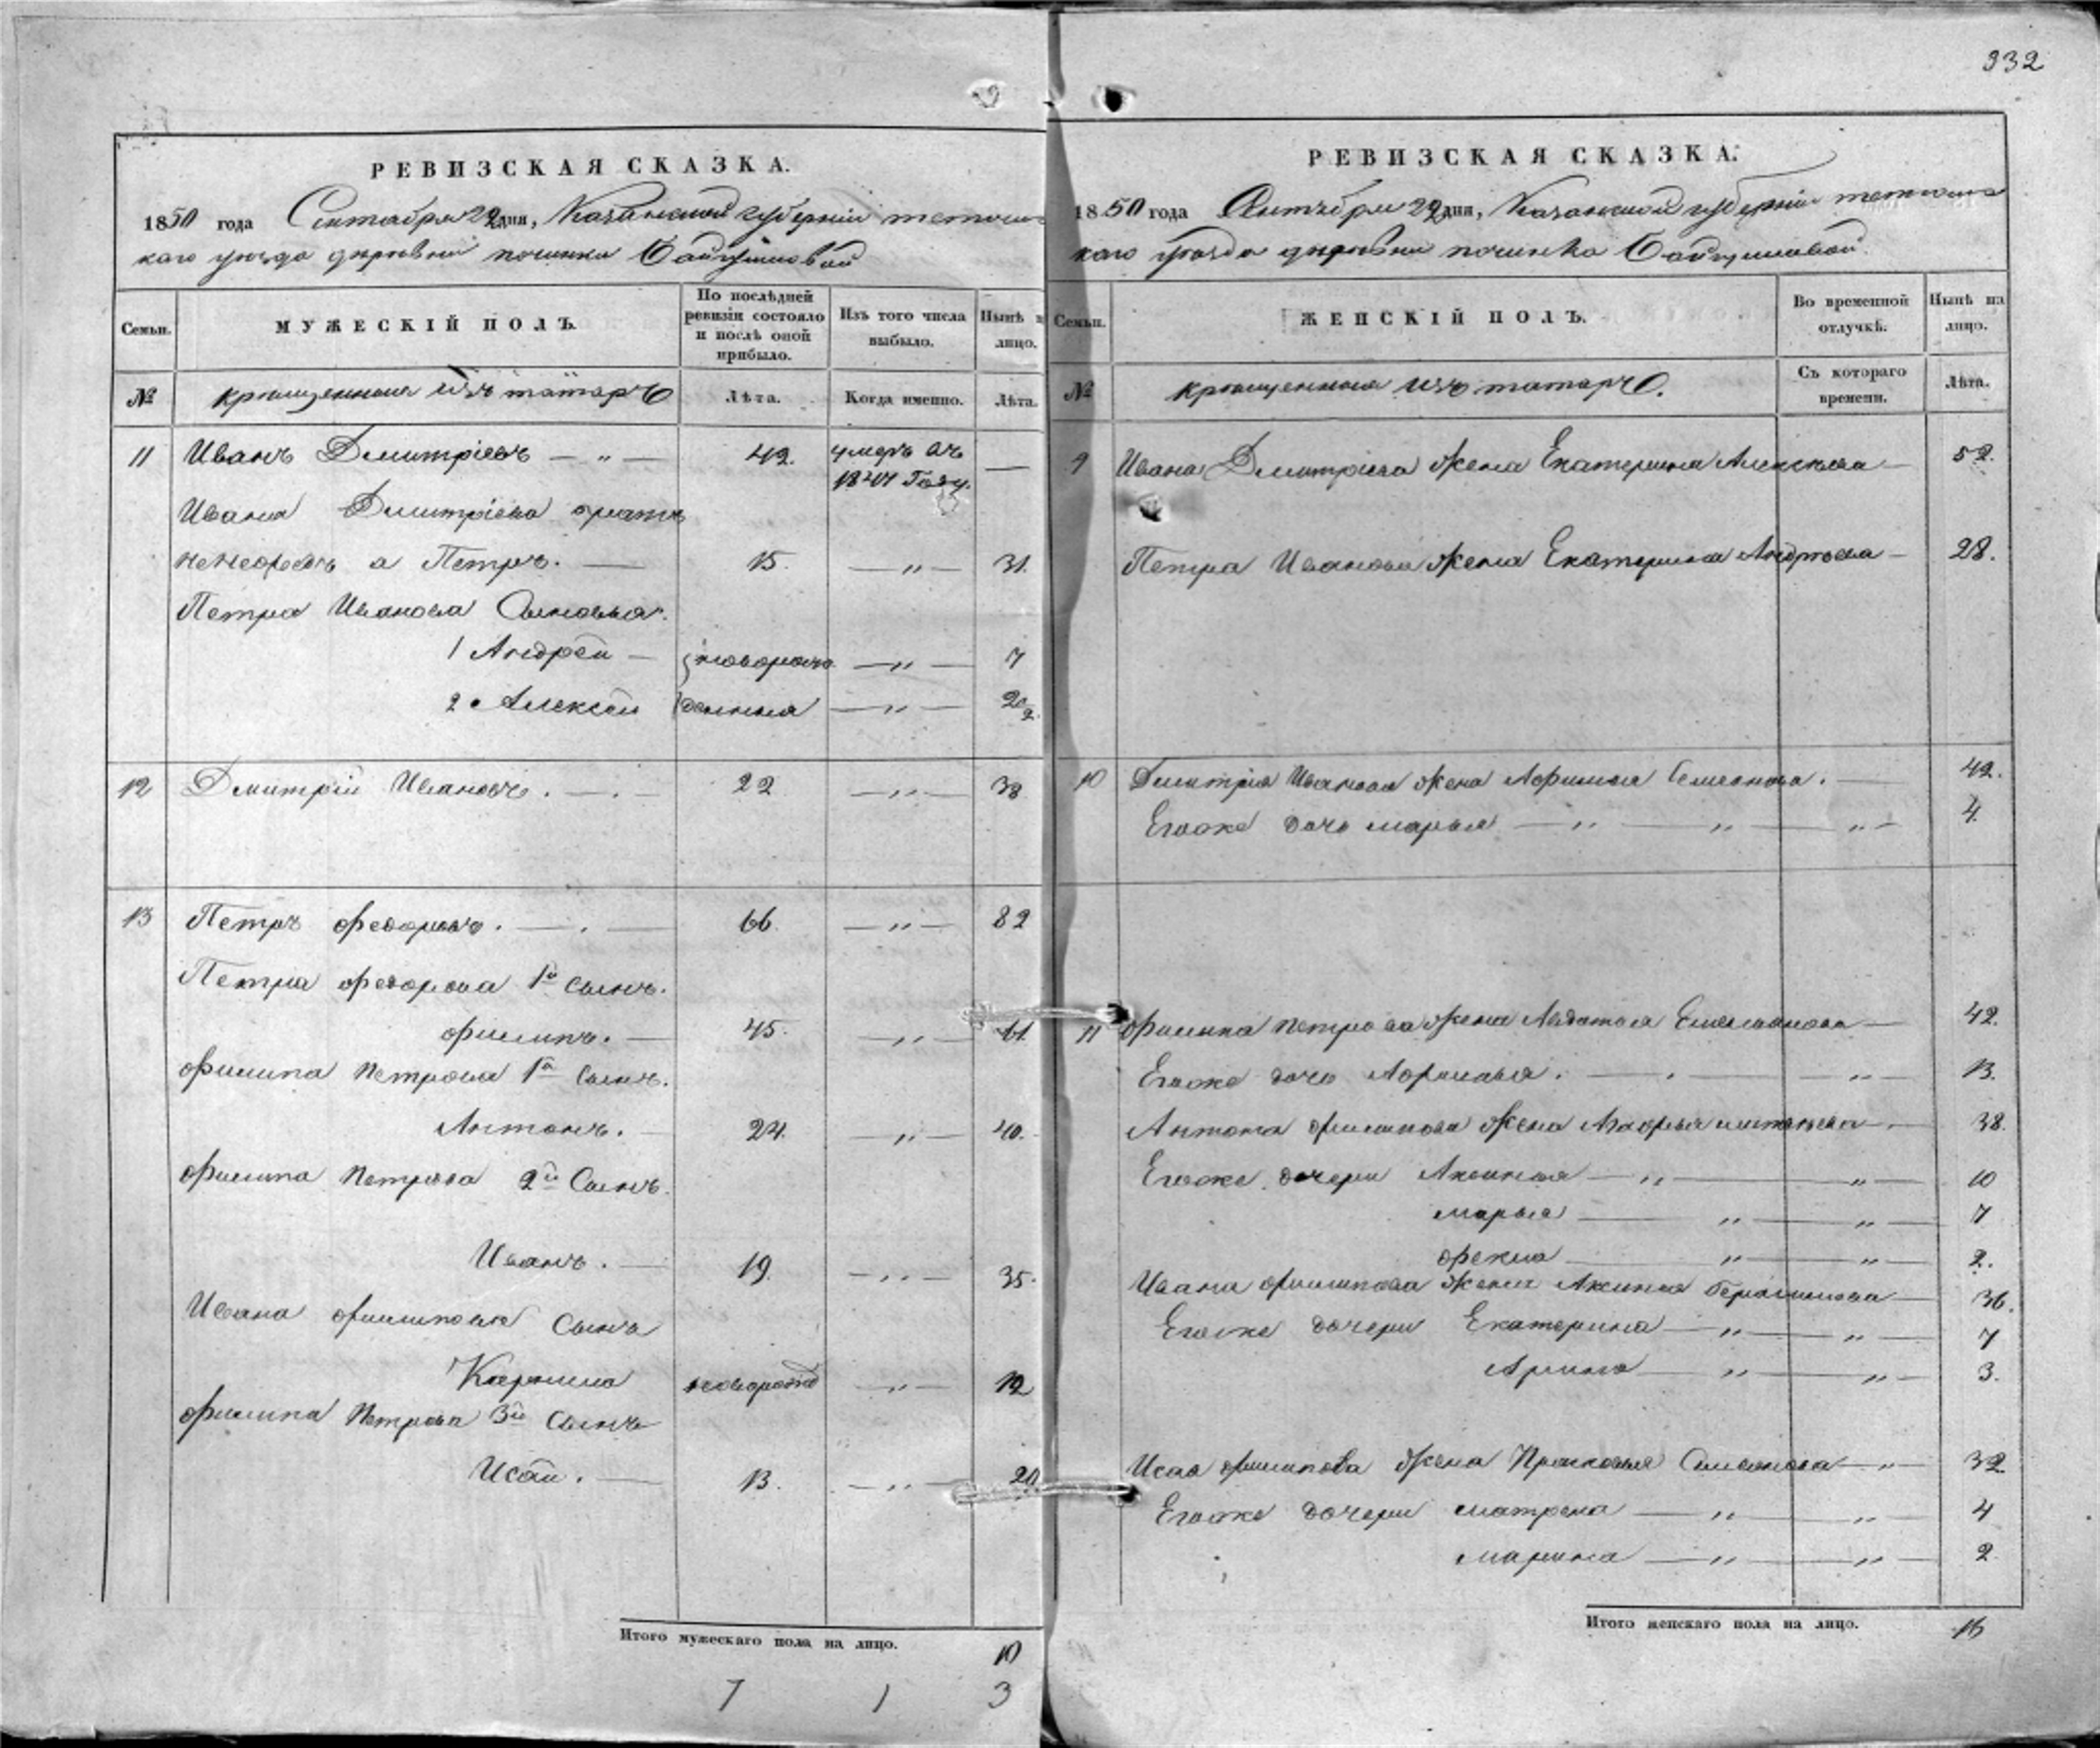 332
РЕВИЗСКАЯ СКАЗКА.
1850 года Сентября 22 дня, Казанской губернии
каго уезда деревни починка
Семьи.
МУЖЕСКІЙ ПОЛЪ.
По послѣдней ревизіи состояло и послѣ оной прибыло.
Изъ того числа выбыло.
Нынѣ н лицо.
№
крещенныя изъ татаръ
Лѣта.
Когда именно.
Лѣта.
11 Иванъ Дмитріевъ — „ — 42. умеръ въ —
1847 Году.
Ивана Дмитріева
а Петръ. — 15. — „ — 31.
Петра Иванова Сыновья.
1 Андрей — новорож — „ — 7
2 Алексей денныя — „ —
12 Дмитрій Ивановъ. — . — 22 — „ — 38
13 Петръ Федоровъ. — . — 66. — „ — 82
Петра Федорова 1й Сынъ.
Филипъ. — 45. — „ — 61
Филипа Петрова 1й Сынъ.
Антонъ. — 24. — „ — 40.
Филипа Петрова 2й Сынъ.
Иванъ. — 19. — „ — 35.
Ивана Филипова Сынъ
новорожд — „ — 12
Филипа Петрова 3й Сынъ
Исай. — 13. — „ — 29
Итого мужескаго пола на лицо. 10
7 1 3
РЕВИЗСКАЯ СКАЗКА.
1850 года Сентября 22 дня, Казанской губернии
каго уезда деревни починка
Семьи.
ЖЕНСКІЙ ПОЛЪ.
Во временной отлучкѣ.
Нынѣ на лицо.
№
крещенныя изъ татаръ.
Съ котораго времени.
Лѣта.
9 Ивана Дмитріева жена Екатерина Алексеева — 52.
Петра Иванова жена Екатерина Андреева — 28.
10 Дмитрія Иванова жена Афимья Семенова. — 42.
Егоже дочь марья — „ — „ — „ — 4.
11 Филипа Петрова жена Авдотья Емельянова — 42.
Егоже дочь Афимья. — . — „ — 13.
Антона Филипова жена — 38.
Егоже дочери Аксинья — „ — „ — 10
марья — „ — „ — 7
Фекла — „ — „ — 2.
Ивана Филипова жена Аксинья Герасимова — 36.
Егоже дочери Екатерина — „ — „ — 7
Арина — „ — „ — 3.
Исая Филипова жена Прасковья Семенова — „ — 32
Егоже дочери матрена — „ — „ — 4
марина — „ — „ — 2
Итого женскаго пола на лицо. 16